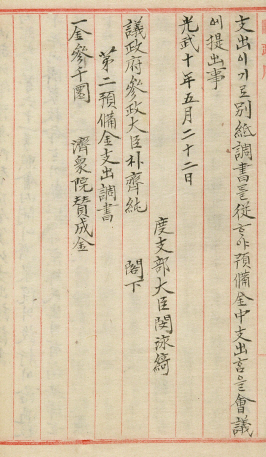 支出이기로別紙調書를從하야預備金中支出홈을會議
에提出事
光武十年五月二十二日
度支部大臣閔泳綺
議政府參政大臣朴齊純 閣下
第二預備金支出調書
一金參千圜 濟衆院贊成金